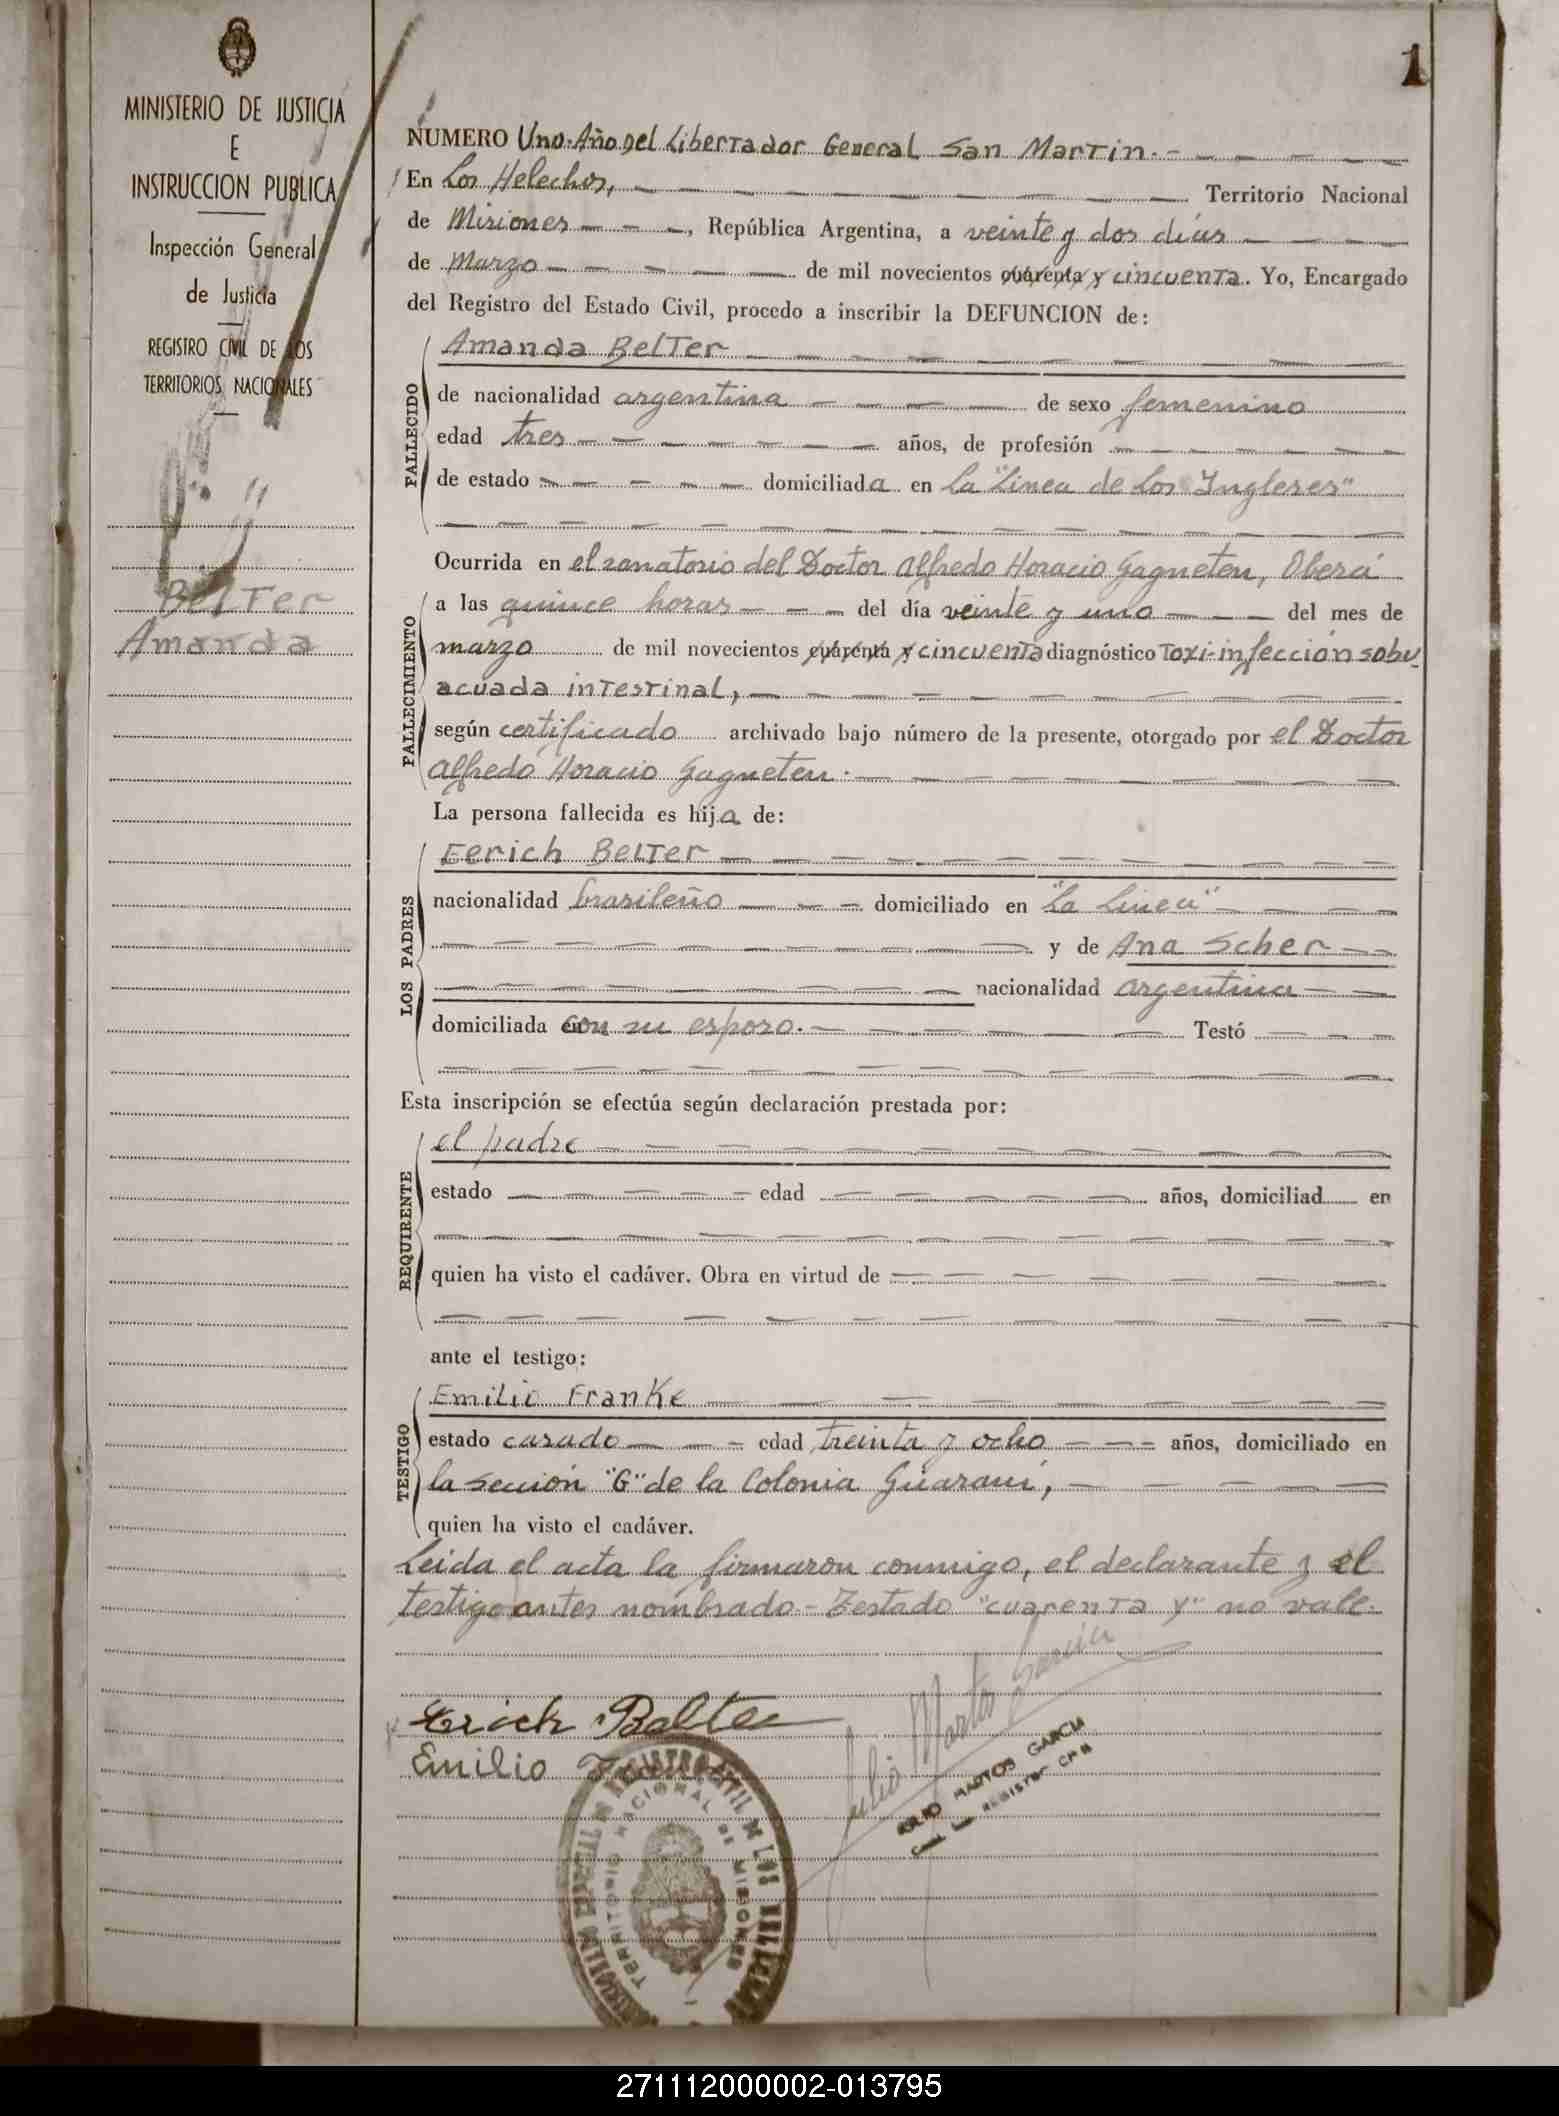 1
MINISTERIO DE JUSTICIA
E
INSTRUCCION PUBLICA
Inspección General
de Justicia
REGISTRO CIVIL DE LOS
TERRITORIOS NACIONALES
Belter
Amanda
NUMERO Uno. Año Del Libertador General San Martin.
En Los Helechos, Territorio Nacional
de Misiones, República Argentina, a veinte y dos días
de Marzo de mil novecientos cuarenta y cincuenta. Yo, Encargado
del Registro del Estado Civil, procedo a inscribir la DEFUNCION de:
FALLECIDO
Amanda Belter
de nacionalidad argentina de sexo femenino
edad tres años, de profesión
de estado domiciliada en La "Linea de Los Ingleses"
Ocurrida en el sanatorio del Doctor Alfredo Horacio Gagneten, Oberá
FALLECIMIENTO
a las quince horas del día veinte y uno del mes de
marzo de mil novecientos cuarenta y cincuenta diagnóstico Toxi-infección sobu
acuada intestinal,
según certificado archivado bajo número de la presente, otorgado por el Doctor
Alfredo Horacio Gagneten.
La persona fallecida es hija de:
LOS PADRES
Eerich Belter
nacionalidad brasileño domiciliado en "La Linea"
y de Ana Scher
nacionalidad argentina
domiciliada en con su esposo. Testó
Esta inscripción se efectúa según declaración prestada por:
REQUIRENTE
el padre
estado edad años, domiciliad en
quien ha visto el cadáver. Obra en virtud de
ante el testigo:
TESTIGO
Emilio Franke
estado casado edad treinta y ocho años, domiciliado en
la sección "G" de la Colonia Guaraní,
quien ha visto el cadáver.
Leida el acta la firmaron conmigo, el declarante y el
testigo antes nombrado - Testado "cuarenta y" no vale.
Erich Belter
Emilio
Julio Martos Garcia
JULIO MARTOS GARCIA
REGISTRO CIVIL DE LOS
TERRITORIO NACIONAL DE MISIONES
271112000002-013795